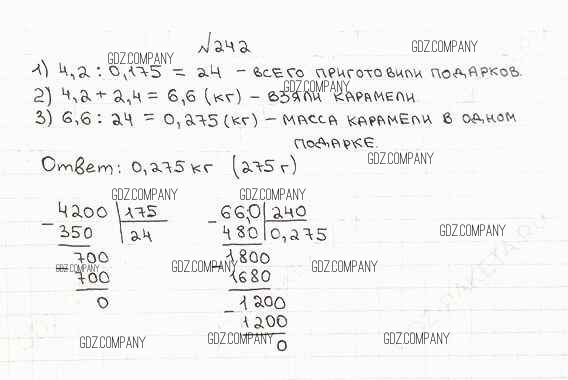 №242
GDZ.COMPANY GDZ.COMPANY
1) 4,2 : 0,175 = 24 – ВСЕГО ПРИГОТОВИЛИ ПОДАРКОВ.
GDZ.COMPANY
2) 4,2 + 2,4 = 6,6 (кг) – ВЗЯЛИ КАРАМЕЛИ
3) 6,6 : 24 = 0,275 (кг) – МАССА КАРАМЕЛИ В ОДНОМ
ПОДАРКЕ.
GDZ.COMPANY
Ответ: 0,275 кг (275 г)
GDZ.COMPANY GDZ.COMPANY
4200 175 66,0 240
– 350 24 – 480 0,275
GDZ.COMPANY
700 1800
GDZ.COMPANY GDZ.COMPANY GDZ.COMPANY
700 – 1680
0 1200
– 1200
0
GDZ.COMPANY GDZ.COMPANY GDZ.COMPANY